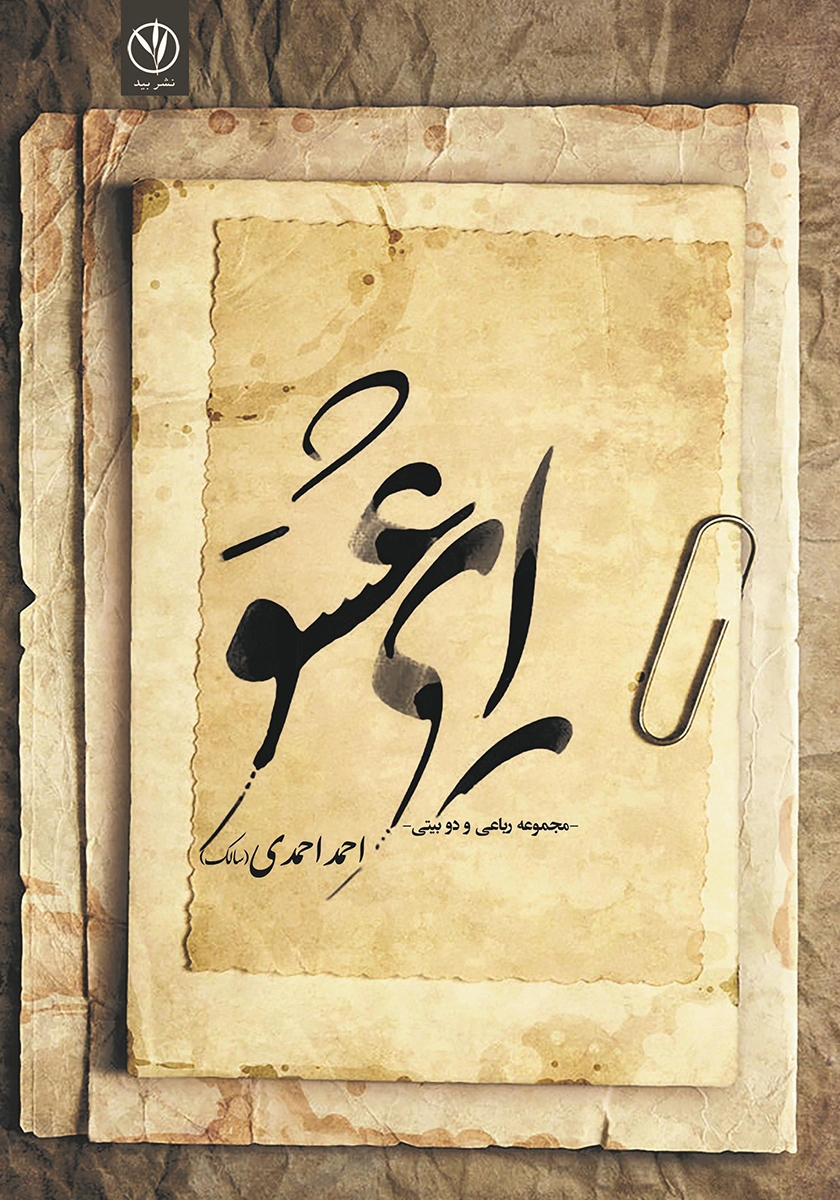 نشر بید
راوی عشق
-مجموعه رباعی و دو بیتی-
احمد احمدی (سالک)